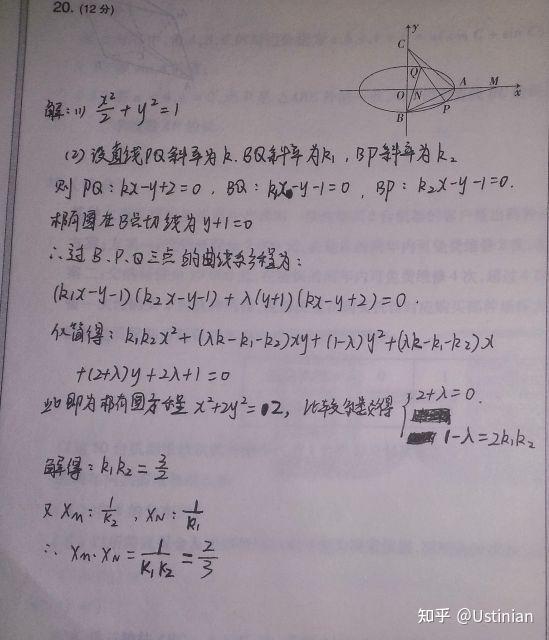 20. (12分)
y
C
Q
A
M
O
N
x
B
P
解:(1) x²/2 + y² = 1
(2) 设直线PQ斜率为k. BQ斜率为k₁, BP斜率为k₂
则 PQ: kx-y+2=0, BQ: k₁x-y-1=0, BP: k₂x-y-1=0.
椭圆在B点切线为 y+1=0
∴过 B、P、Q三点的曲线系方程为:
(k₁x-y-1)(k₂x-y-1)+λ(y+1)(kx-y+2)=0.
化简得: k₁k₂x²+(λk-k₁-k₂)xy+(1-λ)y²+(λk-k₁-k₂)x
+(2+λ)y+2λ+1=0
此即为椭圆方程 x²+2y²=2, 比较系数得 { 2+λ=0.
1-λ=2k₁k₂
解得: k₁k₂ = 3/2
又 Xm: 1/k₂, XN: 1/k₁
∴ Xm·XN = 1/k₁k₂ = 2/3
知乎 @Ustinian